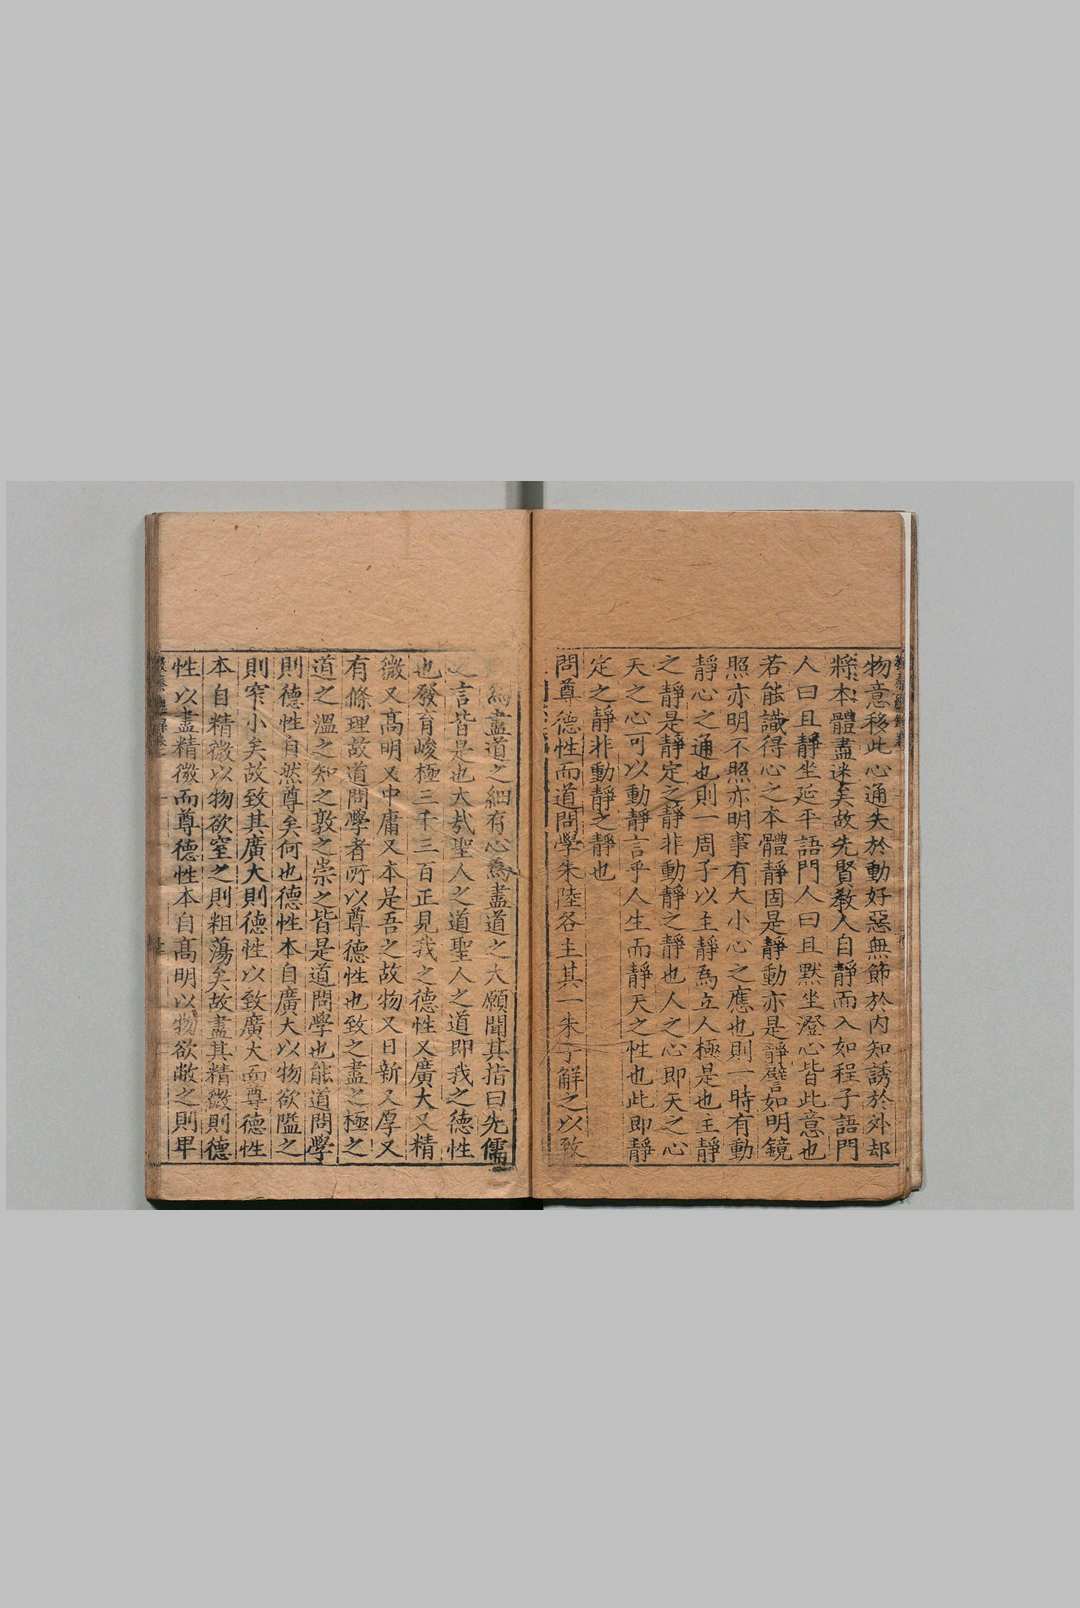 物意移此心通失於動好惡無節於內知誘於外却
將本體盡迷矣故先賢教人自靜而入如程子語門
人曰且靜坐延平語門人曰且默坐澄心皆此意也
若能識得心之本體靜固是靜動亦是靜譬如明鏡
照亦明不照亦明事有大小心之應也則一時有動
靜心之通也則一周子以主靜爲立人極是也主靜
之靜是靜定之靜非動靜之靜也人之心即天之心
天之心可以動靜言乎人生而靜天之性也此即靜
定之靜非動靜之靜也
問尊德性而道問學朱陸各主其一朱子解之以致
知爲盡道之細存心爲盡道之大願聞其指曰先儒
之言皆是也大哉聖人之道聖人之道即我之德性
也發育峻極三千三百正見我之德性又廣大又精
微又高明又中庸又本是吾之故物又日新又厚又
有條理故道問學者所以尊德性也致之盡之極之
道之溫之知之敦之崇之皆是道問學也能道問學
則德性自然尊矣何也德性本自廣大以物欲隘之
則窄小矣故致其廣大則德性以致廣大而尊德性
本自精微以物欲窒之則粗蕩矣故盡其精微則德
性以盡精微而尊德性本自高明以物欲蔽之則卑